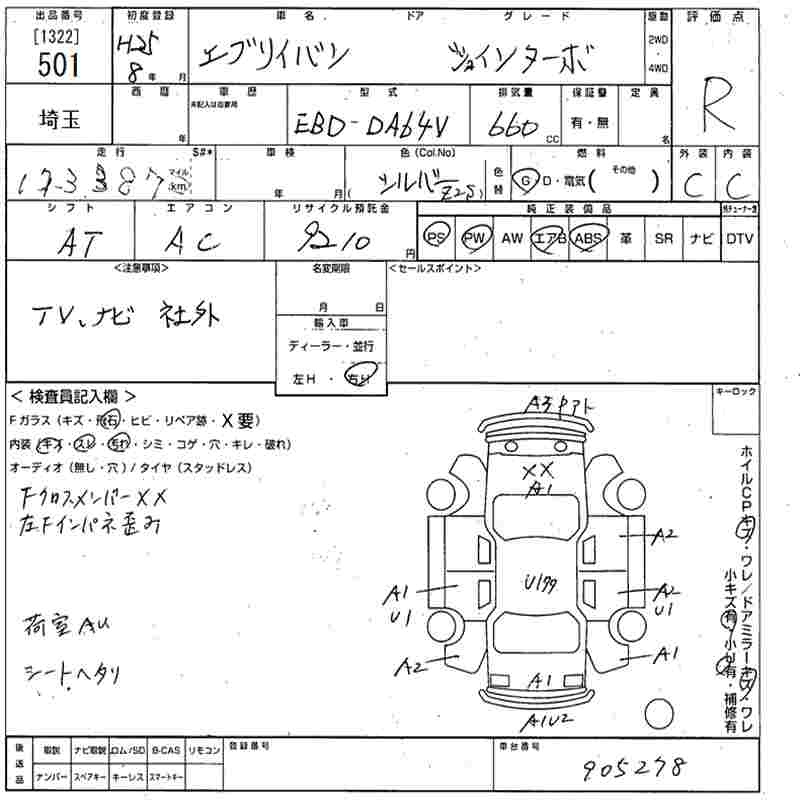 出品番号 初度登録 車名 ドア グレード 駆動 評価点
[1322]
501
H25
8年 月
エブリイバン ジョインターボ
2WD
4WD
R
西暦 車歴 型式 排気量 保証書 定員
未記入は自家用
埼玉
年
EBD-DA64V 660 CC 有・無 名
走行 S#* 車検 色(Col.No) 色替 燃料 外装 内装
173387 マイル km
年 月
(シルバー Z2S)
G D・電気( その他 )
C C
シフト エアコン リサイクル預託金 純正装備品
AT AC 9210 円
PS PW AW エアB ABS 革 SR ナビ DTV
<注意事項> 名変期限 <セールスポイント>
TV、ナビ 社外
月 日
輸入車
ディーラー・並行
左H・右H
<検査員記入欄>
キーロック
Fガラス(キズ・飛石・ヒビ・リペア跡・X要)
内装(キズ・スレ・汚れ・シミ・コゲ・穴・キレ・破れ)
オーディオ(無し・穴)/タイヤ(スタッドレス)
Fクロスメンバー XX
左Fインパネ歪み
荷室AU
シートヘタリ
XX
A1
A2
U177
A1
U1
A2
U1
A2
A1
A1
A1U2
ホイルCPキズ・ワレ/ドアミラーキズ・ワレ
小キズ有・小凹有・補修有
後送品
取説 ナビ取説 ロム/SD B-CAS リモコン
ナンバー スペアキー キーレス スマートキー
登録番号
車台番号
905278